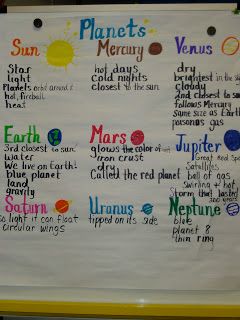 Planets
Sun
Star
light
Planets orbit around it
hot, fireball
heat
Mercury
hot days
cold nights
closest to the sun
Venus
dry
brightest in the sun
cloudy
2nd closest to sun
follows Mercury
Same size as Earth
poisonous gas
Earth
3rd closest to sun
water
We live on Earth!
blue planet
land
gravity
Mars
glows the color of
iron crust
dry
Called the red planet
Jupiter
Great Red Spot
Satellites
ball of gas
swirling + hot
Storm that lasted
300 years
Saturn
so light it can float
circular wings
Uranus
tipped on its side
Neptune
blue
planet 8
thin ring